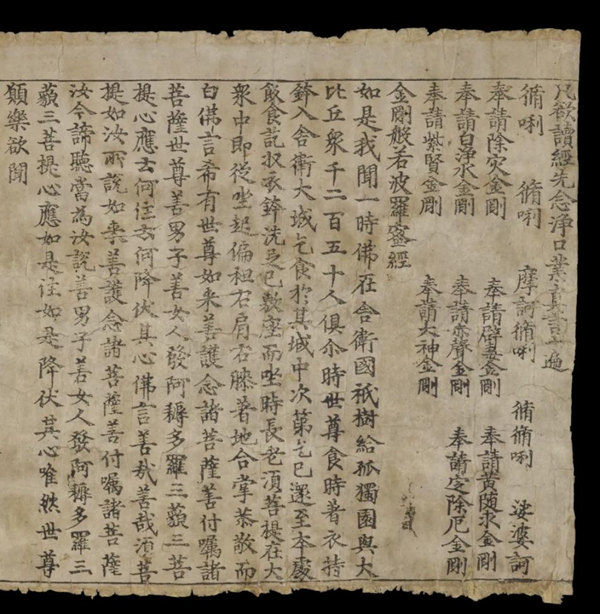 凡欲讀經先念淨口業真言一遍
脩唎 脩唎 摩訶脩唎 脩脩唎 娑婆訶
奉請除灾金剛 奉請辟毒金剛 奉請黃随求金剛
奉請白淨水金剛 奉請赤聲金剛 奉請定除厄金剛
奉請紫賢金剛 奉請大神金剛
金剛般若波羅蜜經
如是我聞一時佛在舍衛國祇樹給孤獨園與大
比丘衆千二百五十人俱尒時世尊食時著衣持
鉢入舍衛大城乞食於其城中次第乞已還至本處
飯食訖収衣鉢洗足已敷座而坐時長老須菩提在大
衆中即從坐起偏袒右肩右膝著地合掌恭敬而
白佛言希有世尊如來善護念諸菩薩善付囑諸
菩薩世尊善男子善女人發阿耨多羅三藐三菩
提心應云何住云何降伏其心佛言善哉善哉須菩
提如汝所說如來善護念諸菩薩善付囑諸菩薩
汝今諦聽當為汝說善男子善女人發阿耨多羅三
藐三菩提心應如是住如是降伏其心唯然世尊
願樂欲聞